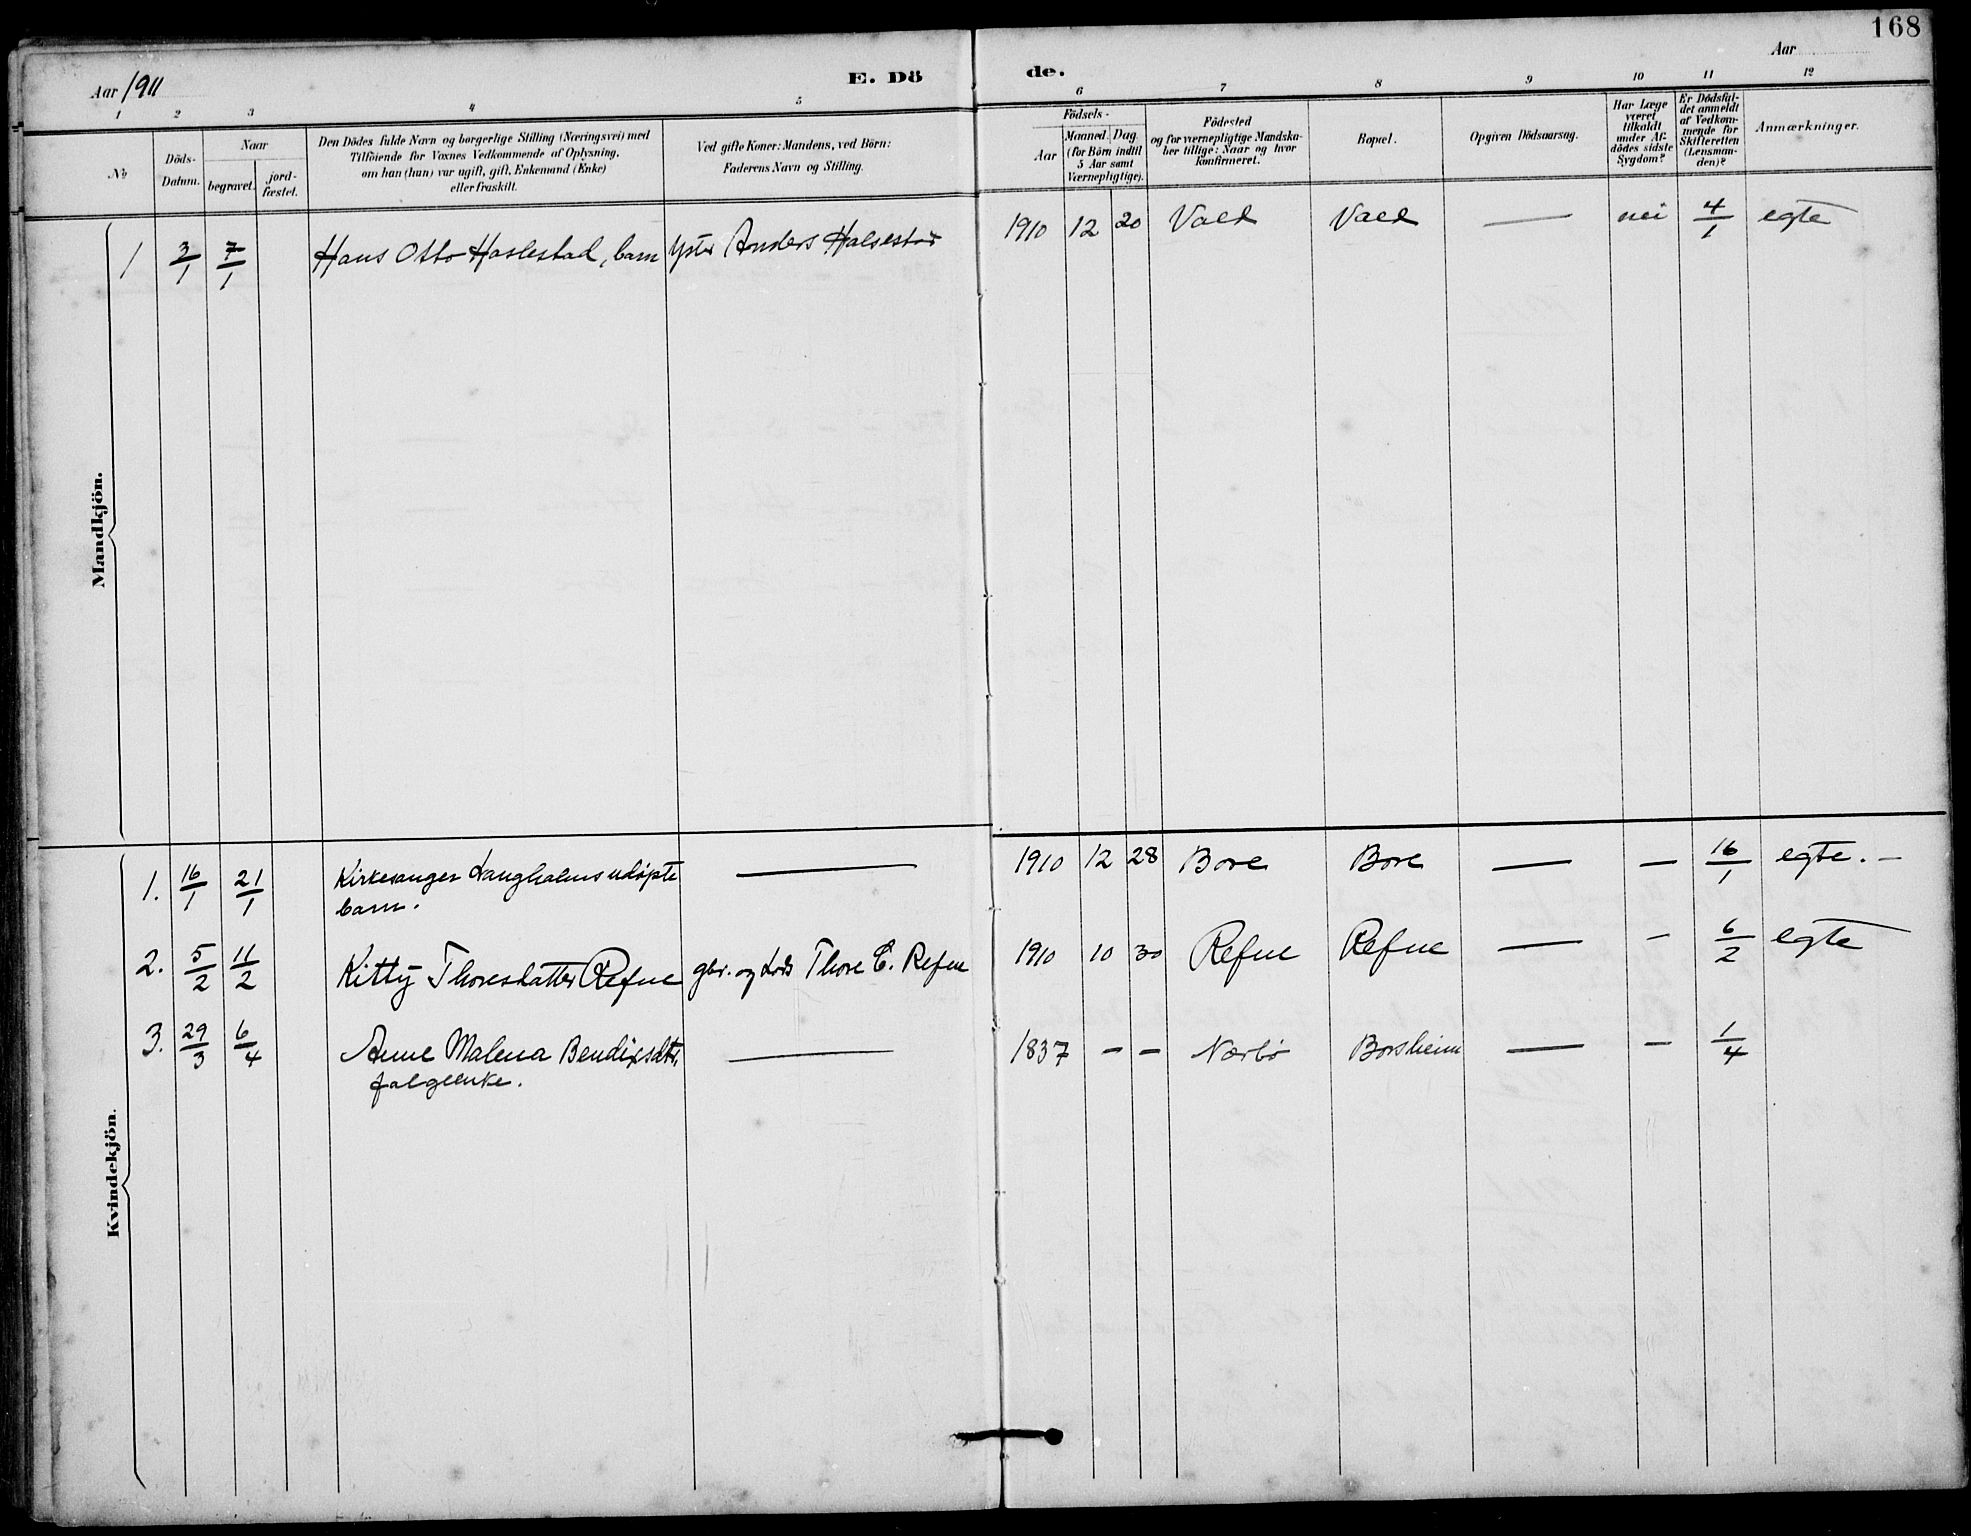 168
Aar 1911
E. Dö
de.
Aar
1 2 3 4 5 6 7 8 9 10 11 12
No
Döds-
Datum.
Naar
begravet.
jord-
fæstet.
Den Dödes fulde Navn og borgerlige Stilling (Næringsvei) med
Tilföiende for Voxnes Vedkommende af Oplysning,
om han (hun) var ugift, gift, Enkemand (Enke)
eller fraskilt.
Ved gifte Koner: Mandens, ved Börn:
Faderens Navn og Stilling.
Födsels-
Aar
Maaned. Dag.
(for Börn indtil
5 Aar samt
Værnepligtige).
Födested
og for værnepligtige Mandska-
ber tillige: Naar og hvor
konfirmeret.
Bopæl.
Opgiven Dödsaarsag.
Har Læge
været
tilkaldt
under Af-
dödes sidste
Sygdom?
Er Dödsfal-
det anmeldt
af Vedkom-
mende for
Skifteretten
(Lensman-
den)?
Anmærkninger.
Mandkjön.
1 3/1 7/1 Hans Otto Haslestad, barn Yster Anders Halsestad 1910 12 20 Vold Vold — nei 4/1 egte
Kvindekjön.
1. 16/1 21/1 Kirkesanger Langholms udøpte — 1910 12 28 Bore Bore — — 16/1 egte. —
barn.
2. 5/2 11/2 Kitty Thoresdatter Refne gbr. og Lods Thore E. Refne 1910 10 30 Refne Refne — — 6/2 egte
3. 29/3 6/4 Anne Malena Bendixsdtr, — 1837 — — Nærbø Borsheim — — 1/4
enke.